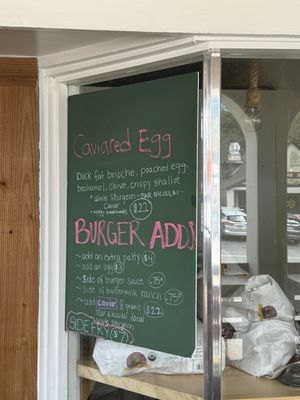 Caviared Egg
Duck fat brioche, poached egg,
bechamel, chive, crispy shallot
*White Sturgeon - TSAR NICOULAI -
Caviar
$22
BURGER ADDS
~ add an extra patty $4
~ add an egg $3
~ Side of burger sauce .75¢
~ Side of buttermilk ranch .75¢
~ add Caviar 8 grams $22
Tsar Nicoulai local
White Sturgeon
SIDE FRY $7